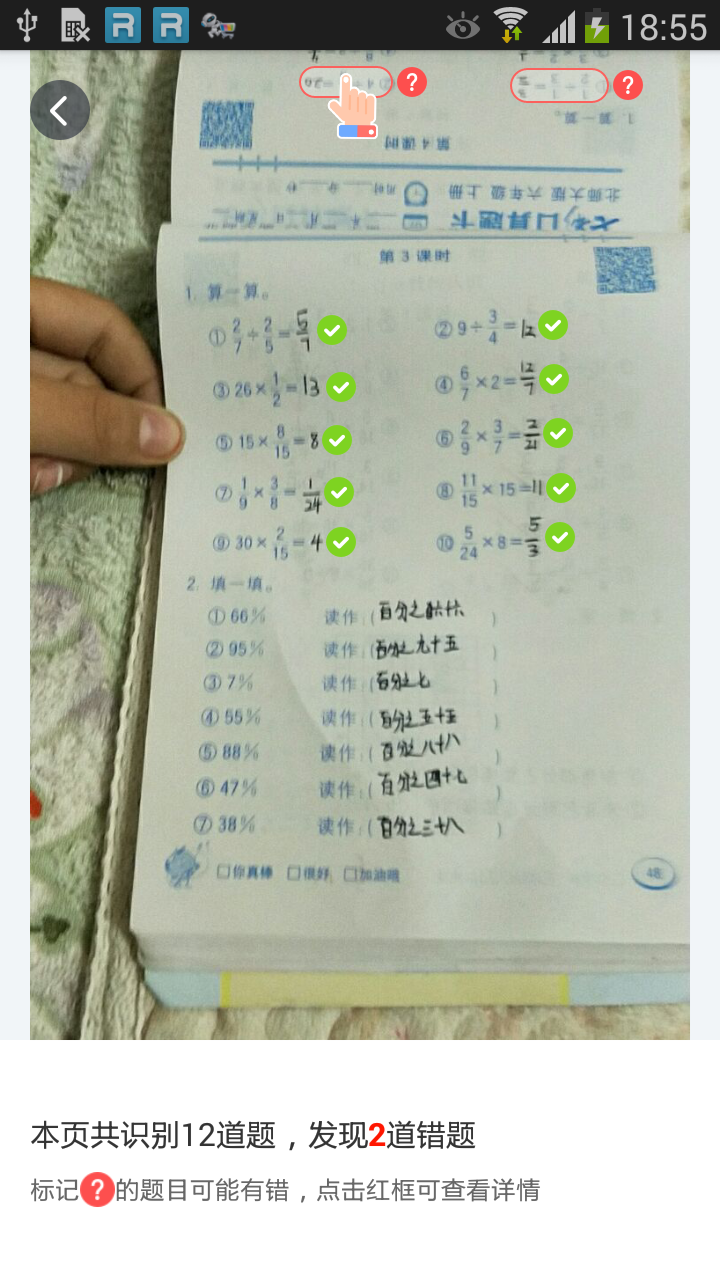 18:55
1. 算一算。
第 4 课时
北师大版 六年级 上册
口算题卡
第 3 课时
1. 算一算。
① 2/7 ÷ 2/5 = 5/7 ② 9 ÷ 3/4 = 12
③ 26 × 1/2 = 13 ④ 6/7 × 2 = 12/7
⑤ 15 × 8/15 = 8 ⑥ 2/9 × 3/7 = 2/21
⑦ 1/9 × 3/8 = 1/24 ⑧ 11/15 × 15 = 11
⑨ 30 × 2/15 = 4 ⑩ 5/24 × 8 = 5/3
2. 填一填。
① 66% 读作:(百分之六十六)
② 95% 读作:(百分之九十五)
③ 7% 读作:(百分之七)
④ 55% 读作:(百分之五十五)
⑤ 88% 读作:(百分之八十八)
⑥ 47% 读作:(百分之四十七)
⑦ 38% 读作:(百分之三十八)
□你真棒 □很好 □加油哦
48
本页共识别12道题，发现2道错题
标记?的题目可能有错，点击红框可查看详情